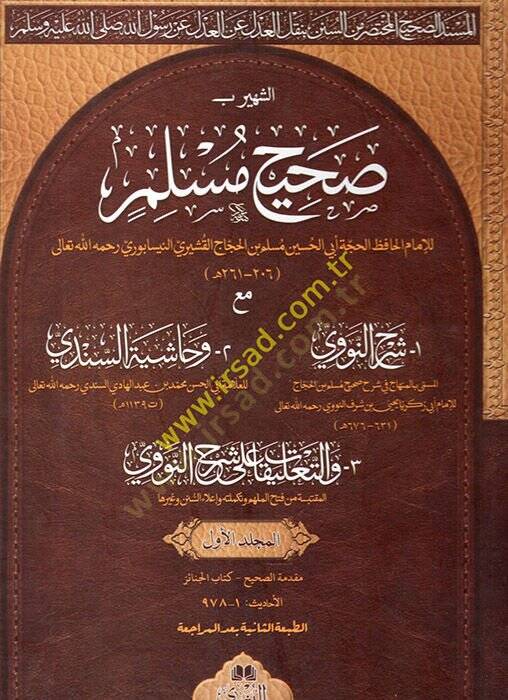 المسند الصحيح المختصر من السنن بنقل العدل عن العدل عن رسول الله صلى الله عليه وسلم
الشهير ب
صحيح مسلم
للإمام الحافظ الحجة أبي الحسين مسلم بن الحجاج القشيري النيسابوري رحمه الله تعالى
(٢٠٦-٢٦١هـ)
مع
١- شرح النووي
المسمى بالمنهاج في شرح صحيح مسلم بن الحجاج
للإمام أبي زكريا يحيى بن شرف النووي رحمه الله تعالى
(٦٣١-٦٧٦هـ)
٢- وحاشية السندي
للعلامة أبي الحسن محمد بن عبد الهادي السندي رحمه الله تعالى
(ت١١٣٩هـ)
٣- والتعليقات على شرح النووي
المقتبسة من فتح الملهم وتكملته وإعلاء السنن وغيرها
المجلد الأول
مقدمة الصحيح - كتاب الجنائز
الأحاديث: ١-٩٧٨
الطبعة الثانية بعد المراجعة
البشرى
www.irsad.com.tr
www.irsad.com.tr